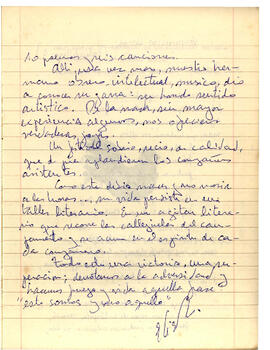 10 poemas y seis canciones.
Allí, una vez más, nuestro her-
mano obrero, intelectual, músico, dio
a conocer su gama: su hondo sentido
artístico. De la nada, sin mayor
experiencia algunos, nos ofrecieron
verdaderas joyas.
Un público sobrio, recio, de calidad,
que de pie aplaudieron los compañeros
asistentes.
Como este debió nacer y no moría
a las horas..., su vida persiste en un
taller literario. Es un agitar litera-
rio que recorre las callejuelas del cam-
pamento y se suma en el espíritu de ca-
da compañero.
Todo esto era victoria, una su-
peración; derrotamos a la adversidad y
hacemos fuego y vida aquella frase
"esto somos y no aquello".